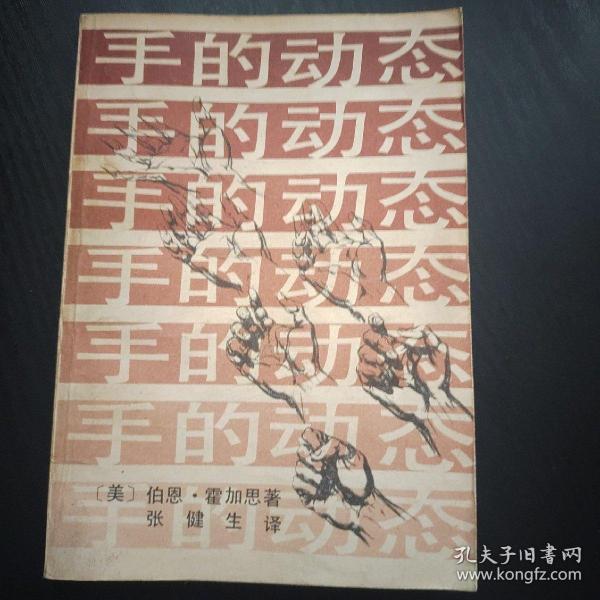 手的动态
手的动态
手的动态
手的动态
手的动态
手的动态
手的动态
〔美〕伯恩·霍加思著
张健生译
孔夫子旧书网
www.kongfz.com